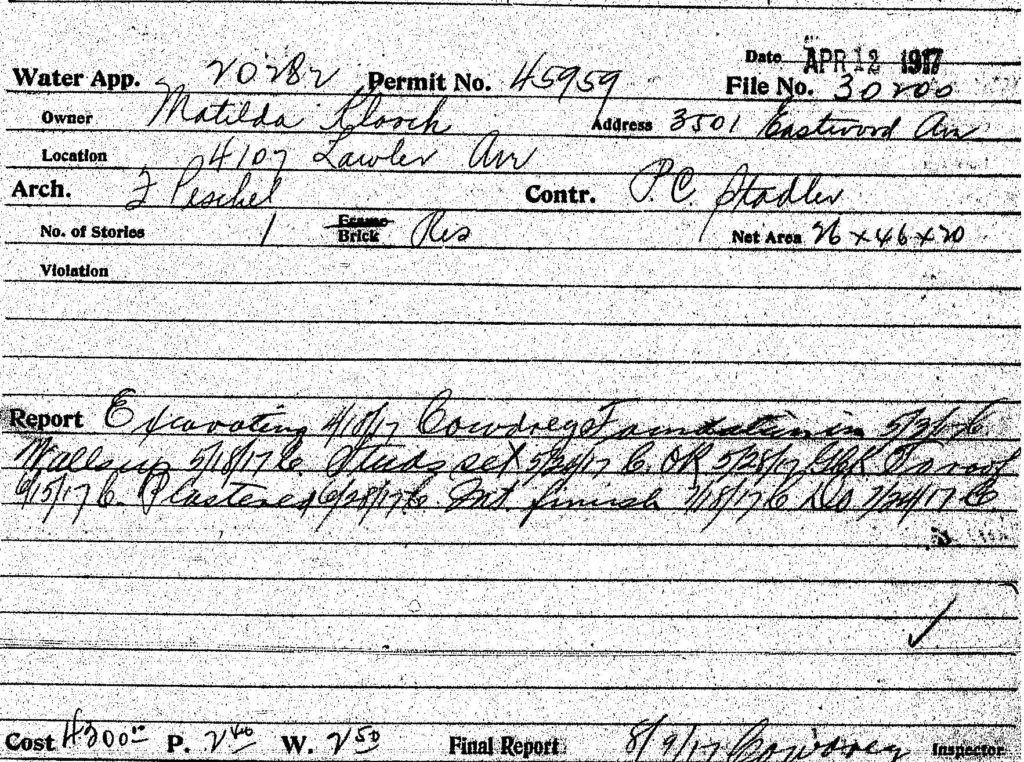 Date APR 12 1917
Water App. 20282 Permit No. 45959 File No. 30200
Owner Matilda Address 3501 Eastwood Ave
Location 4107 Lawler Ave
Arch. F Peschel Contr. P.C. Stadler
No. of Stories 1 Frame Brick Res Net Area 26 x 46 x 20
Violation
Report Excavating 4/18/17 Cowdrey Foundation in 5/3/17 C
Walls up 5/18/17 C. Studs set 5/26/17 C. OK 5/28/17 To roof
6/15/17 C. Plastered 6/28/17 C Int. finish 7/18/17 C Do 7/24/17 C
Cost 4300.00 P. 2 40 W. 2 50 Final Report 8/9/17 Cowdrey Inspector